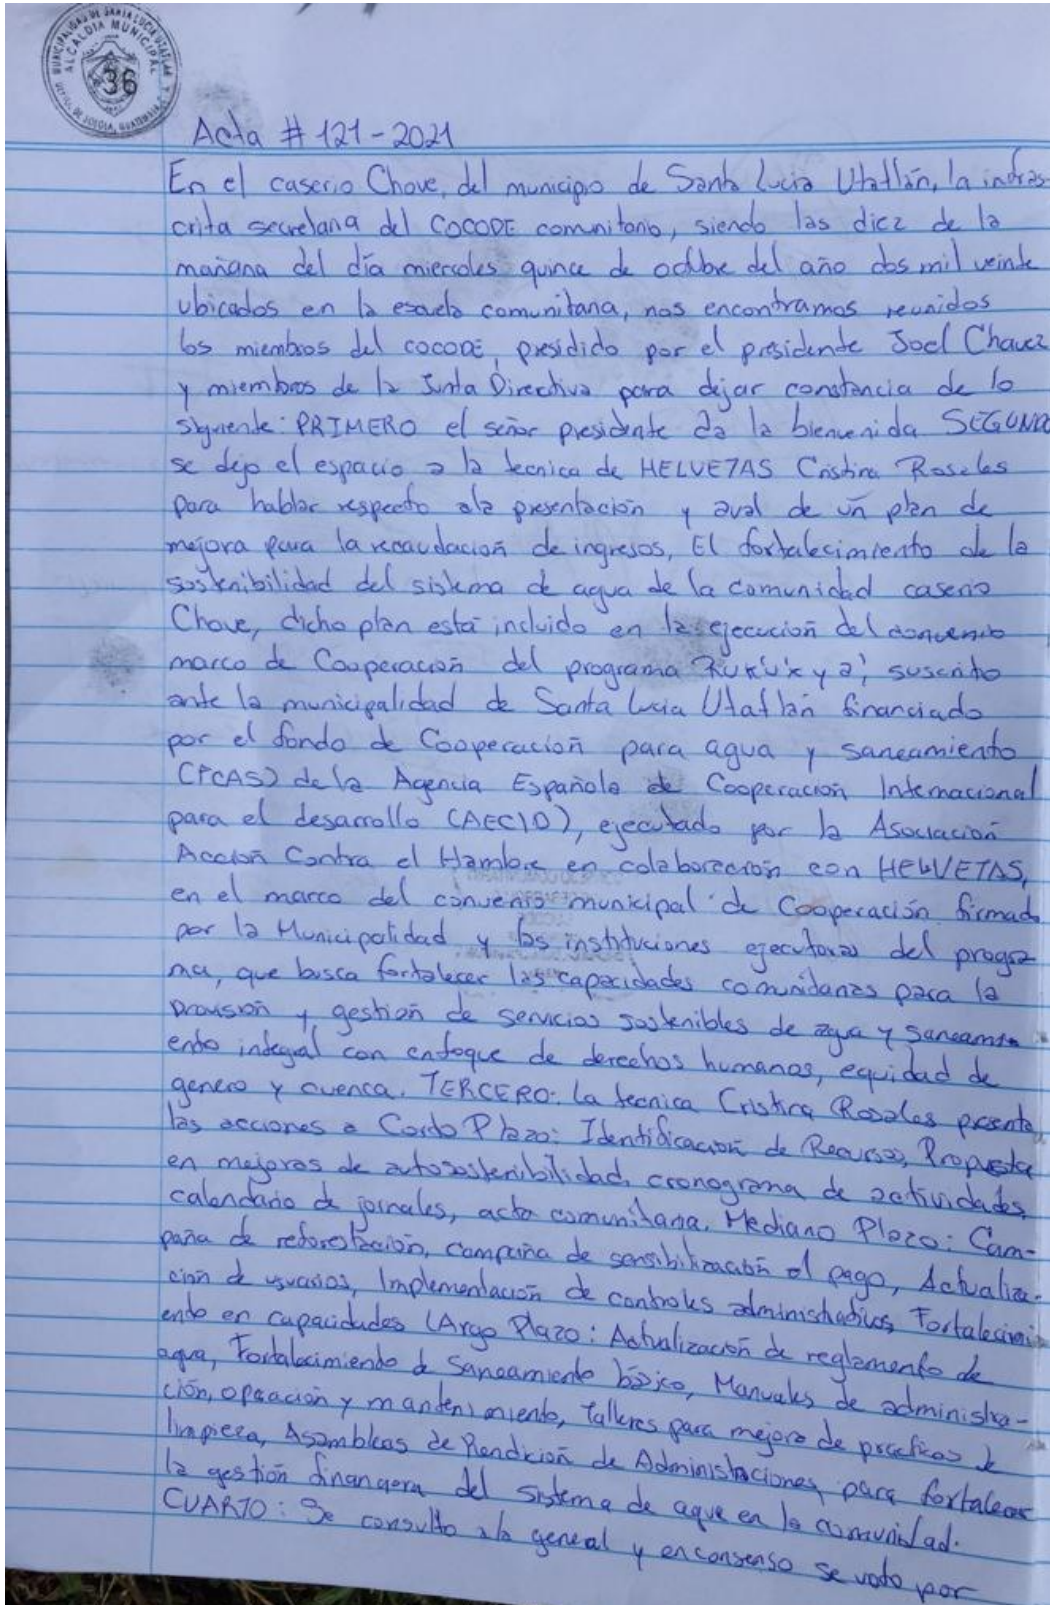 MUNICIPALIDAD DE SANTA LUCIA UTATLAN
ALCALDIA MUNICIPAL
36
DEPTO. DE SOLOLA, GUATEMALA
Acta # 121-2021
En el caserio Chove, del municipio de Santa Lucia Utatlán, la infras-
crita secretaria del COCODE comunitario, siendo las diez de la
mañana del día miercoles quince de octubre del año dos mil veinte
ubicados en la escuela comunitaria, nos encontramos reunidos
los miembros del COCODE, presidido por el presidente Joel Chavez
y miembros de la Junta Directiva para dejar constancia de lo
siguiente: PRIMERO el señor presidente da la bienvenida SEGUNDO
se dejo el espacio a la tecnica de HELVETAS Cristina Rosales
para hablar respecto ala presentación y aval de un plan de
mejora para la recaudación de ingresos, El fortalecimiento de la
sostenibilidad del sistema de agua de la comunidad caserio
Chove, dicho plan está incluido en la ejecución del convenio
marco de Cooperación del programa Ruk'u'x ya', suscrito
ante la municipalidad de Santa Lucia Utatlán financiado
por el fondo de Cooperación para agua y saneamiento
(FCAS) de la Agencia Española de Cooperación Internacional
para el desarrollo (AECID), ejecutado por la Asociación
Acción Contra el Hambre en colaboración con HELVETAS,
en el marco del convenio municipal de Cooperación firmado
por la Municipalidad y las instituciones ejecutoras del progra
ma, que busca fortalecer las capacidades comunitarias para la
provisión y gestión de servicios sostenibles de agua y saneami
ento integral con enfoque de derechos humanos, equidad de
genero y cuenca. TERCERO: La tecnica Cristina Rosales presenta
las acciones a Corto Plazo: Identificación de Recursos, Propuesta
en mejoras de autosostenibilidad, cronograma de actividades,
calendario de jornales, acta comunitaria. Mediano Plazo: Cam-
paña de reforestación, campaña de sensibilización al pago, Actualiza-
ción de usuarios, Implementación de controles administrativos, Fortalecimi
ento en capacidades LArgo Plazo: Actualización de reglamento de
agua, Fortalecimiento de Saneamiento básico, Manuales de administra-
ción, operación y mantenimiento, Talleres para mejora de practicas de
limpieza, Asambleas de Rendición de Administraciones, para fortalecer
la gestión financiera del sistema de agua en la comunidad.
CUARTO: Se consulto ala general y en consenso se voto por